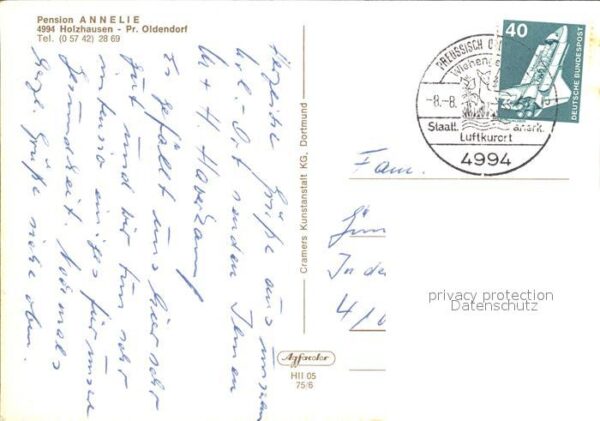 Pension ANNELIE
4994 Holzhausen - Pr. Oldendorf
Tel. (0 57 42) 28 69
Herzliche Grüße aus unserem
U.-Ort senden Ihnen
W + H Haverkamp
Es gefällt uns hier sehr
gut und wir tun sehr
intensiv einiges für unsere
Gesundheit. Nochmals
Herzl. Grüße siehe oben.
Cramers Kunstanstalt KG, Dortmund
Agfacolor
HII 05
75/6
PREUSSISCH
Wiehenge
-8.-8.
Staatl. anerk.
Luftkurort
4994
40
DEUTSCHE BUNDESPOST
Fam.
In de
privacy protection
Datenschutz